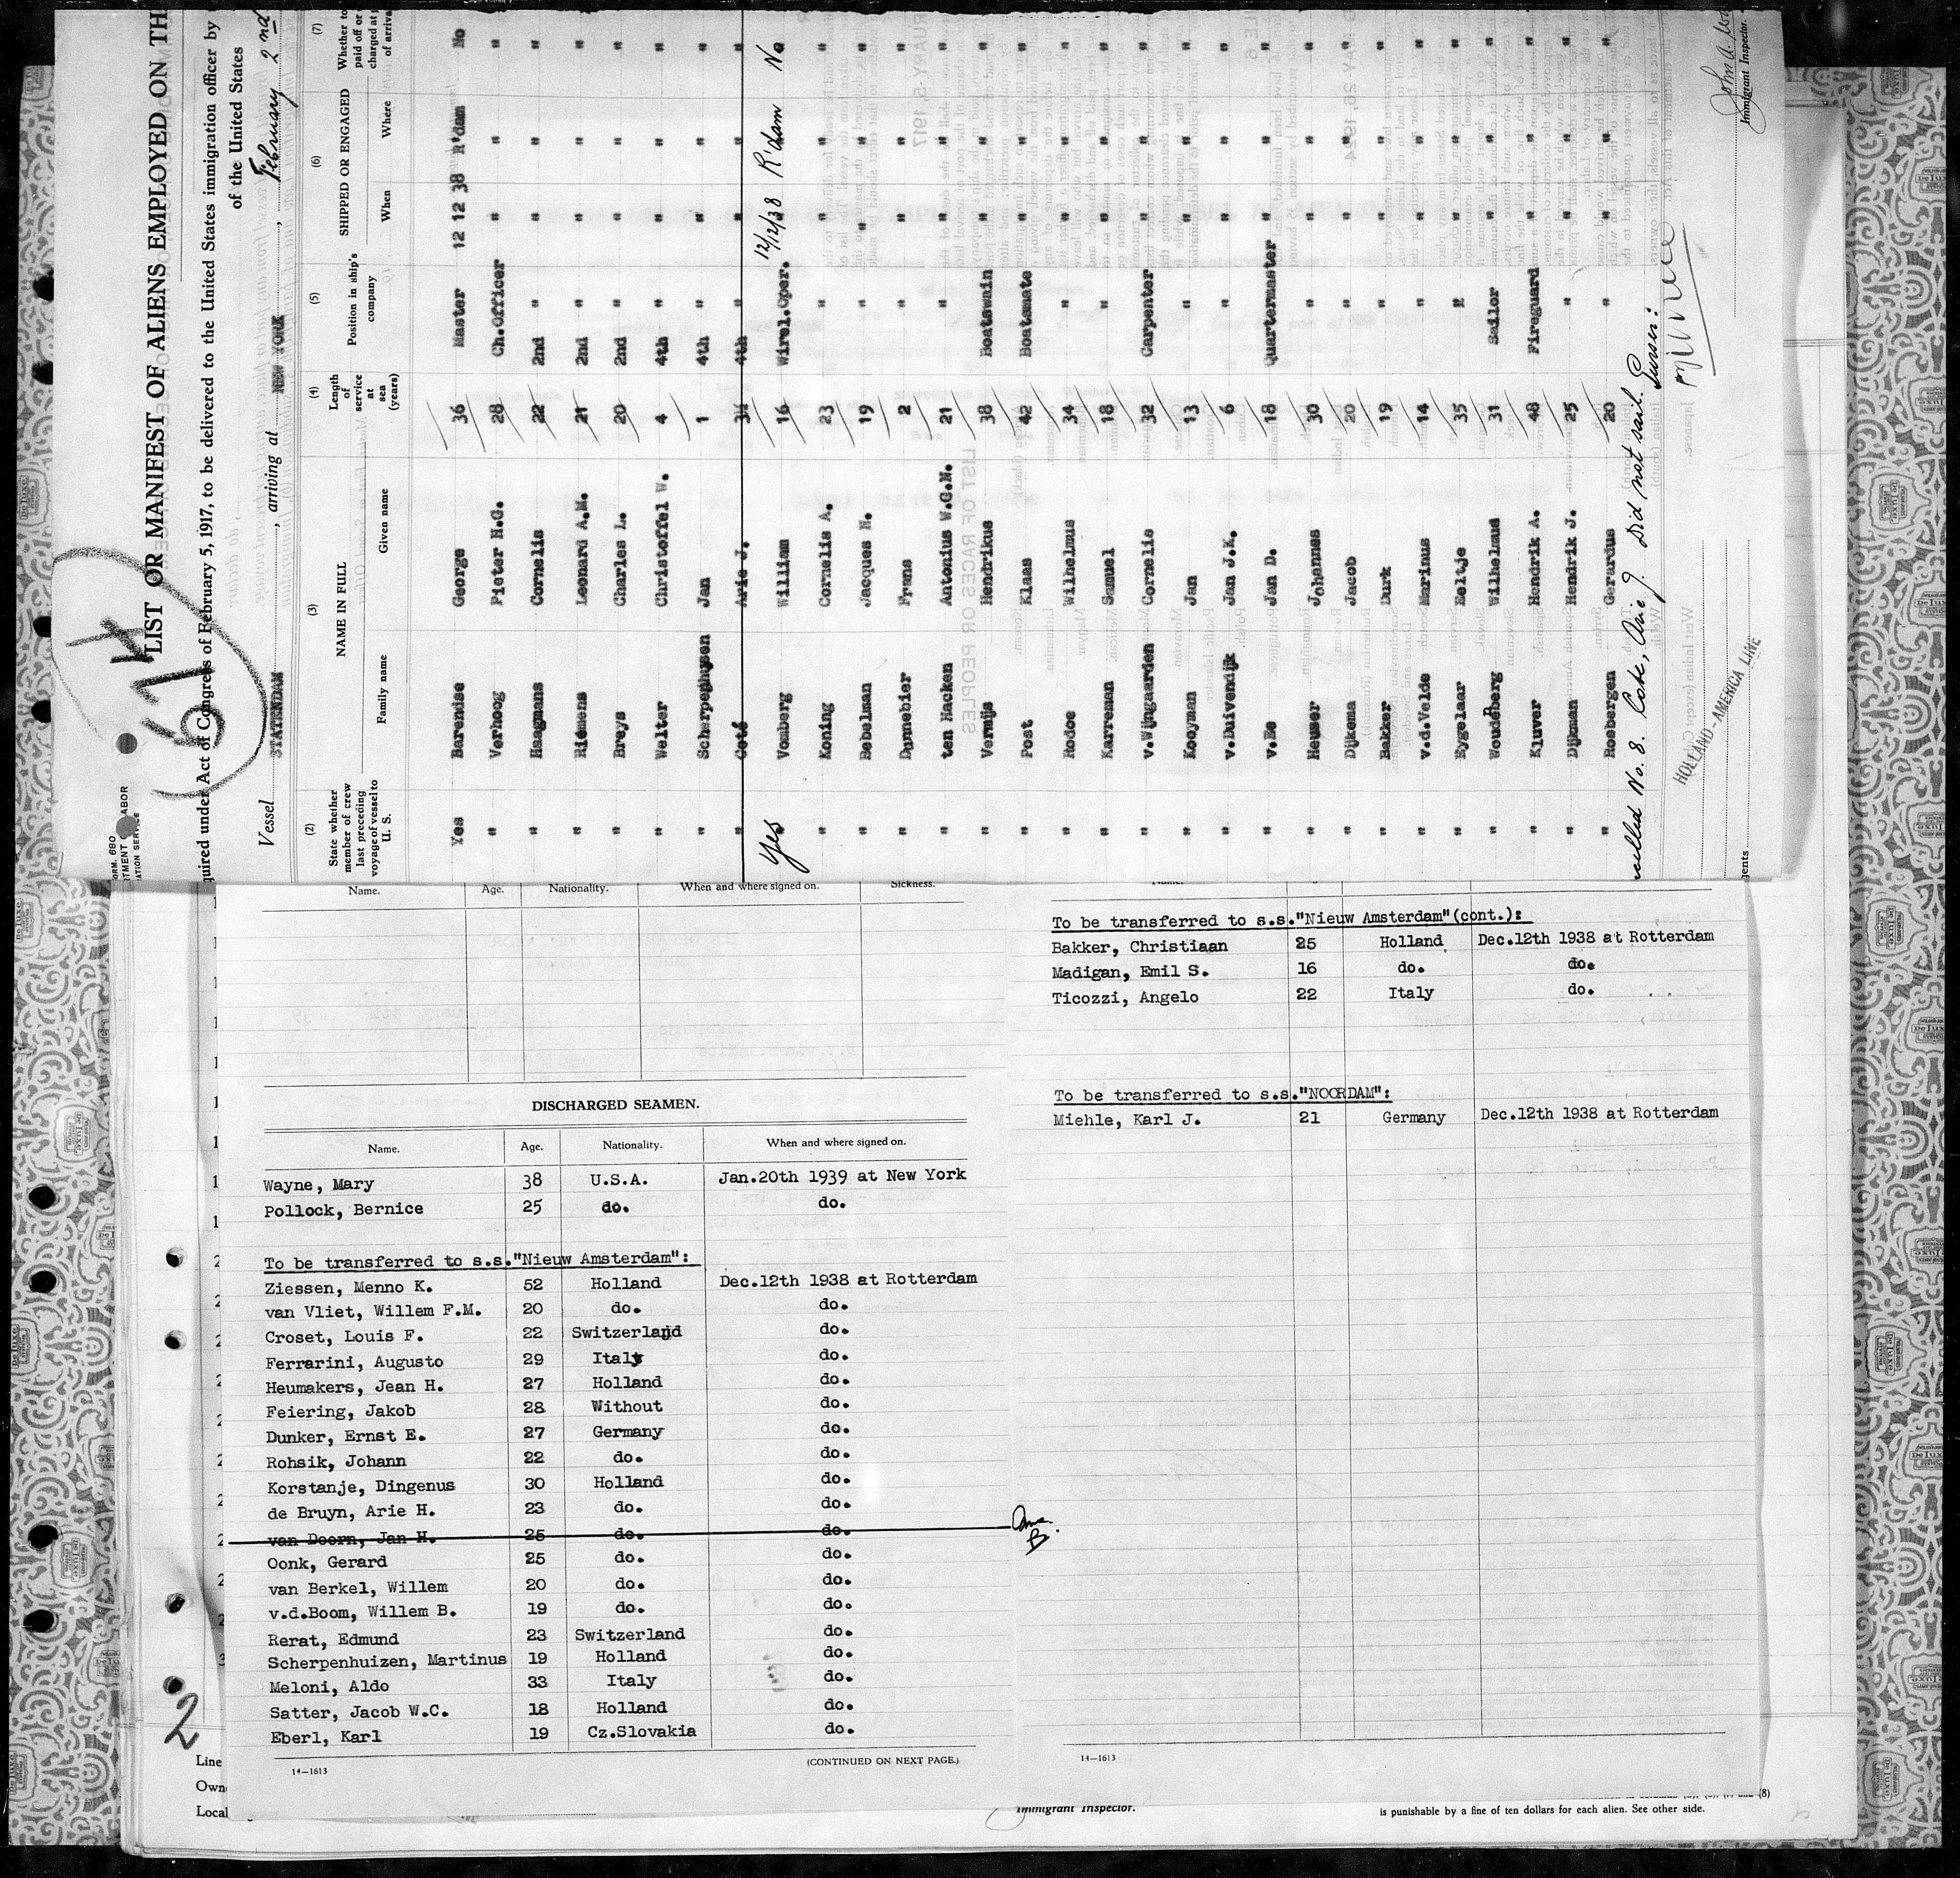 LIST OR MANIFEST OF ALIENS EMPLOYED ON TH
quired under Act of Congress of February 5, 1917, to be delivered to the United States immigration officer by
of the United States
Vessel STATENDAM, arriving at NEW YORK, February 2nd
(2) (3) (4) (5) (6) (7)
State whether member of crew last preceding voyage of vessel to U. S.
NAME IN FULL
Family name Given name
Length of service at sea (years)
Position in ship's company
SHIPPED OR ENGAGED
When Where
Yes Barendse George 36 Master 12 12 38 R'dam No
" Verhoog Pieter H.G. 28 Ch.Officer " " "
" Haagmans Cornelis 22 2nd " " " "
" Riemens Leonard A.M. 21 2nd " " " "
" Breys Charles L. 20 2nd " " " "
" Welter Christoffel W. 4 4th " " " "
" Scherpenhuysen Jan 1 4th " " " "
" Coté Arie J. 34 4th " " " "
Yes " Vomberg William 16 Wirel.Oper. 12/12/38 R'dam No
" Koning Cornelis A. 23 " " " "
" Bebelman Jacques N. 19 " " " "
" Dunnebier Frans 2 " " " "
" ten Hacken Antonius W.G.N. 21 " " " "
" Vermijs Hendrikus 38 Boatswain " " "
" Post Klaas 42 Boatsmate " " "
" Rodoe Wilhelmus 34 " " " "
" Karreman Samuel 18 " " " "
" v.Wijngaarden Cornelis 32 Carpenter " " "
" Kooyman Jan 13 " " " "
" v.Duivendijk Jan J.K. 6 " " " "
" v.Ee Jan D. 18 Quartermaster " " "
" Heuser Johannes 30 " " " "
" Dijkema Jacob 20 " " " "
" Bakker Durk 19 " " " "
" v.d.Velde Marinus 14 " " " "
" Eygelaar Eeltje 35 " " " "
" Woudenberg Wilhelmus 31 Sailor " " "
" Kluver Hendrik A. 48 Fireguard " " "
" Dijkman Hendrik J. 25 " " " "
" Rosbergen Gerardus 20 " " " "
No. 8. Coté, Arie J. Did not sail.
HOLLAND-AMERICA LINE
Immigrant Inspector.
Name. Age. Nationality. When and where signed on. Sickness.
DISCHARGED SEAMEN.
Name. Age. Nationality. When and where signed on.
Wayne, Mary 38 U.S.A. Jan.20th 1939 at New York
Pollock, Bernice 25 do. do.
To be transferred to s.s."Nieuw Amsterdam":
Ziessen, Menno K. 52 Holland Dec.12th 1938 at Rotterdam
van Vliet, Willem F.M. 20 do. do.
Croset, Louis F. 22 Switzerland do.
Ferrarini, Augusto 29 Italy do.
Heumakers, Jean H. 27 Holland do.
Feiering, Jakob 28 Without do.
Dunker, Ernst E. 27 Germany do.
Rohsik, Johann 22 do. do.
Korstanje, Dingenus 30 Holland do.
de Bruyn, Arie H. 23 do. do.
van Doorn, Jan H. 25 do. do.
Oonk, Gerard 25 do. do.
van Berkel, Willem 20 do. do.
v.d.Boom, Willem B. 19 do. do.
Rerat, Edmund 23 Switzerland do.
Scherpenhuizen, Martinus 19 Holland do.
Meloni, Aldo 33 Italy do.
Satter, Jacob W.C. 18 Holland do.
Eberl, Karl 19 Cz.Slovakia do.
14—1613 (CONTINUED ON NEXT PAGE.)
To be transferred to s.s."Nieuw Amsterdam"(cont.):
Bakker, Christiaan 25 Holland Dec.12th 1938 at Rotterdam
Madigan, Emil S. 16 do. do.
Ticozzi, Angelo 22 Italy do.
To be transferred to s.s."NOORDAM":
Miehle, Karl J. 21 Germany Dec.12th 1938 at Rotterdam
14—1613
2
Line
Local
Immigrant Inspector.
is punishable by a fine of ten dollars for each alien. See other side.